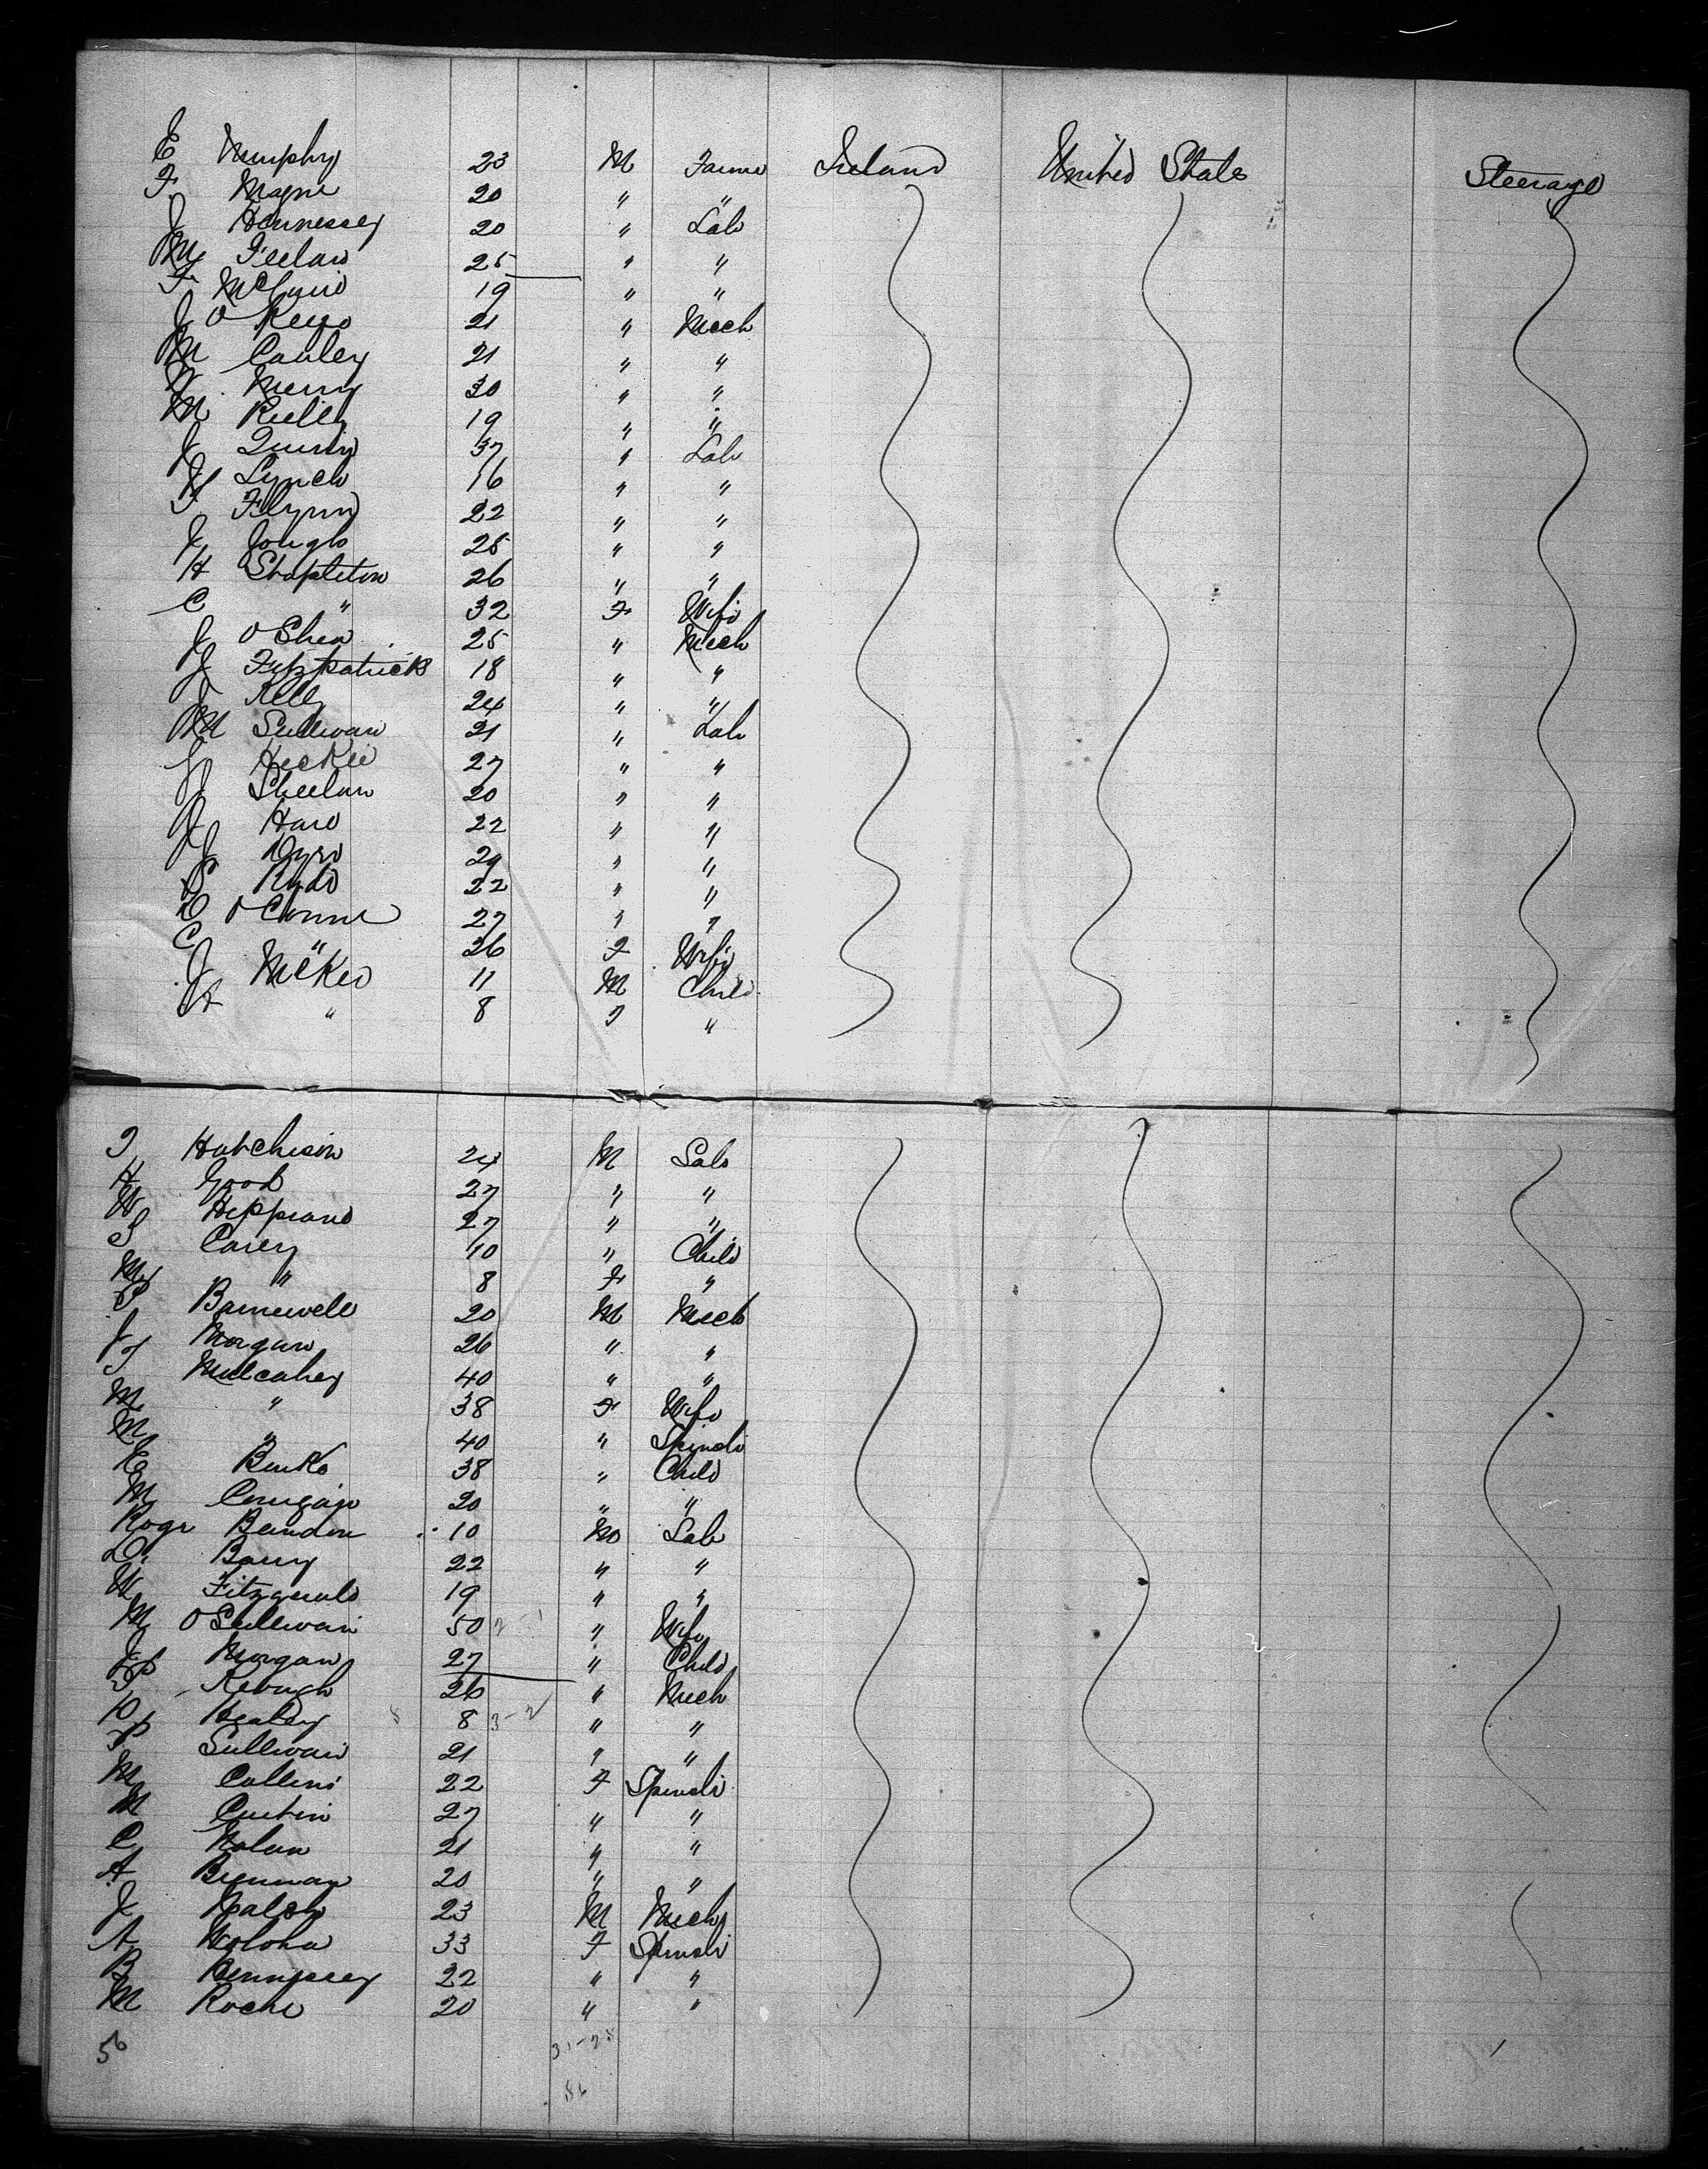 E Murphy 23 M Farmer Ireland United States Steerage
F Magner 20 " "
J Hennessey 20 " Lab
M Feelan 25 " "
F 19 " "
J O Keefe 21 " Mech
M Cauley 21 " "
W Merry 30 " "
M Reilly 19 " "
J Quinn 37 " Lab
J Lynch 16 " "
T Flynn 22 " "
J 25 " "
H Stapleton 26 " "
C " 32 F Wife
J O Shea 25 " Mech
J Fitzpatrick 18 " "
J Kelly 24 " "
M Sullivan 21 " Lab
J Hickie 27 " "
J Sheelan 20 " "
J Hare 22 " "
J Dyer 29 " "
P 22 " "
D O Connor 27 " "
C " 26 F Wife
J McKee 11 M Child
A " 8 F "
T Hutchison 24 M Lab
H Good 27 " "
W 27 " "
S Carey 10 " Child
M " 8 F "
P Barnewell 20 M Mech
J Morgan 26 " "
T Mulcahey 40 " "
M " 38 F Wife
M " 40 " Spinstr
E Burke 38 " Child
M 20 " "
Rogr 10 M Lab
D Barry 22 " "
W Fitzgerald 19 " "
M O Sullivan 50 " Wife
J Morgan 27 " Child
P Keough 26 " Mech
D Healey 8 3-2 " "
P Sullivan 21 " "
M Collins 22 F Spinstr
M Curtin 27 " "
C Nolan 21 " "
A Brennan 20 " "
J Walsh 23 M Mech
A Moloha 33 F Spinstr
B Dempsey 22 " "
M Roche 20 " "
56 31-25
56